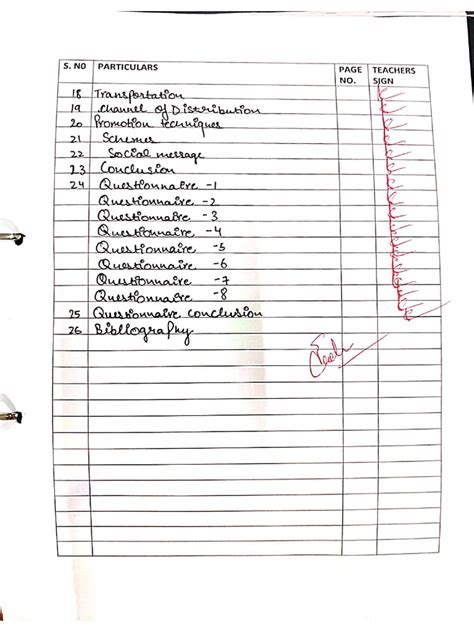 S. NO PARTICULARS PAGE NO. TEACHERS SIGN
18 Transportation
19 channel of Distribution
20 Promotion techniques
21 Schemes
22 Social message
23 Conclusion
24 Questionnaire -1
Questionnaire -2
Questionnaire -3
Questionnaire -4
Questionnaire -5
Questionnaire -6
Questionnaire -7
Questionnaire -8
25 Questionnaire conclusion
26 Bibliography